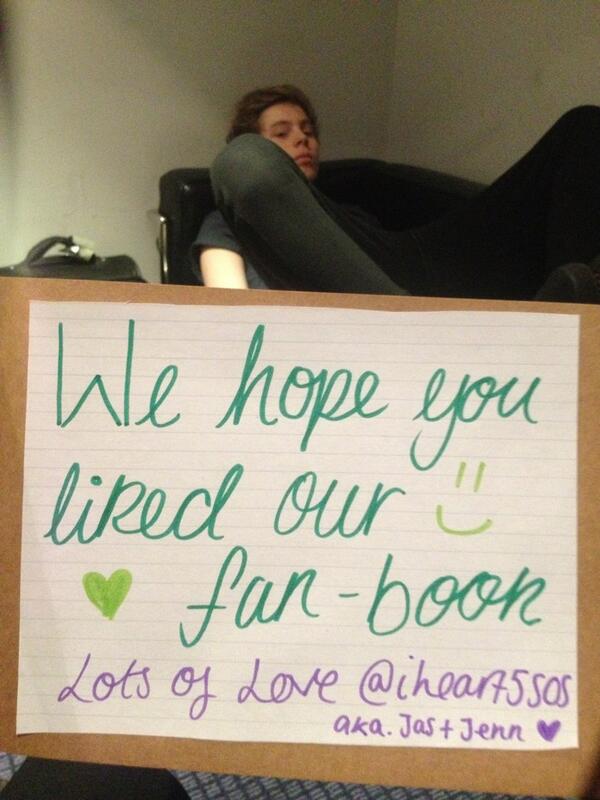 We hope you
liked our
fan-book
Lots of Love @iheart5sos
aka. Jas + Jenn